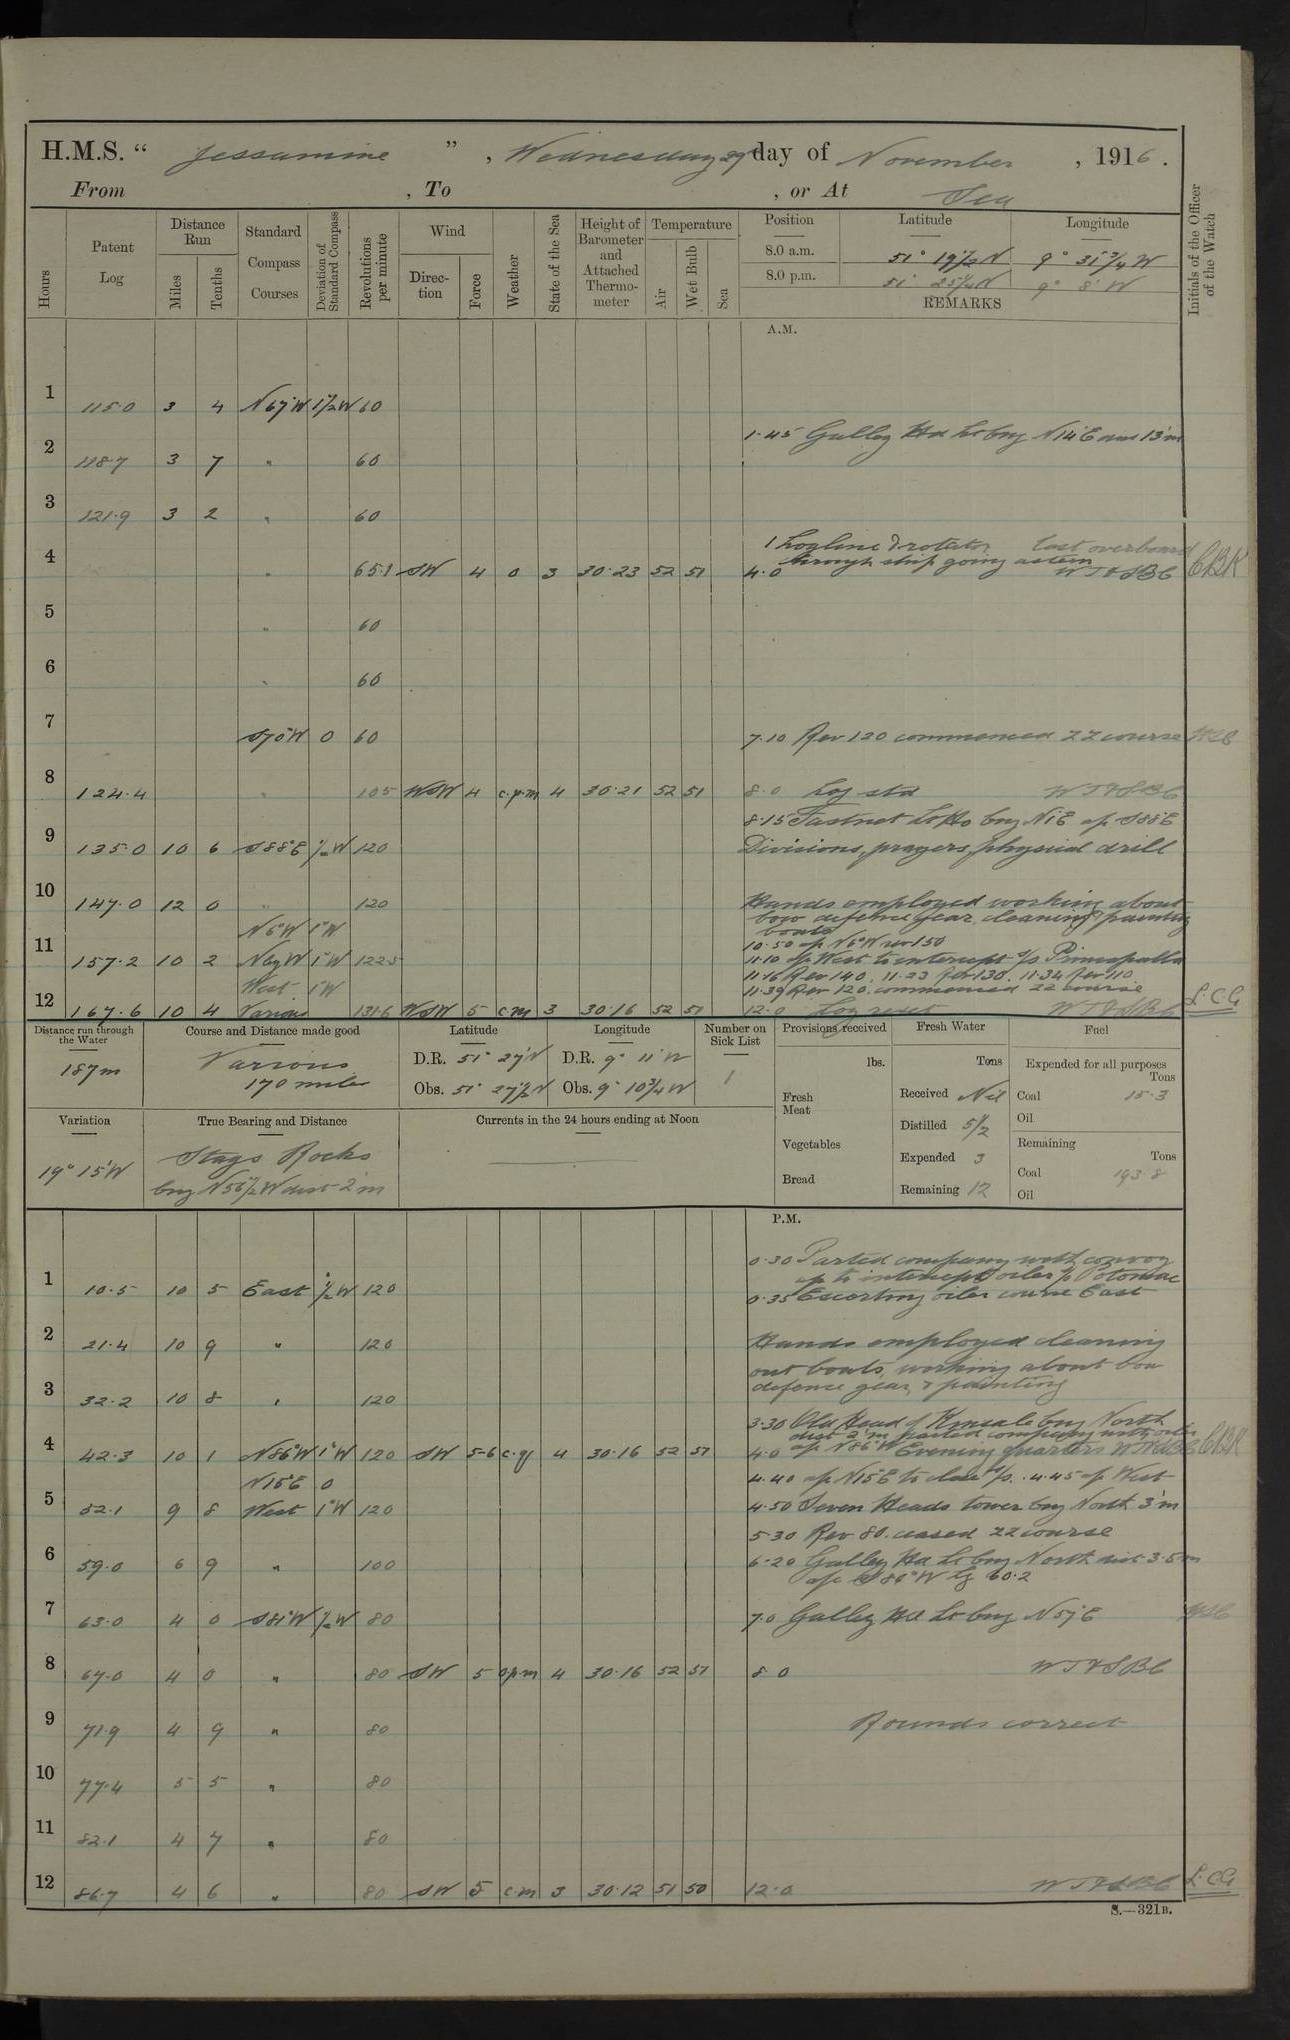 H.M.S. " Jessamine ", Wednesday 29 day of November, 1916.
From , To , or At Sea
Hours
Patent Log
Distance Run
Miles
Tenths
Standard Compass Courses
Deviation of Standard Compass
Revolutions per minute
Wind
Direction
Force
Weather
State of the Sea
Height of Barometer and Attached Thermometer
Temperature
Air
Wet Bulb
Sea
Position Latitude Longitude
8.0 a.m. 51° 19½ N 9° 31¾ W
8.0 p.m. 51° 25¼ N 9° 8' W
REMARKS
Initials of the Officer of the Watch
A.M.
1 115.0 3 4 N67W 1½W 60
1.45 Galley Hd Lt brg N14E 13'm
2 118.7 3 7 " 60
3 121.9 3 2 " 60
1 Logline & rotator lost overboard
through ship going astern
4 " 65.1 SW 4 0 3 30.23 52 51 4.0 WT&SBC CBK
5 " 60
6 " 60
7 S70W 0 60 7.10 Rev 120 commenced ZZ course
8 124.4 " 105 WSW 4 c.p.m 4 30.21 52 51 8.0 Log std WT&SBC
8.15 Fastnet Lt Ho brg N1E a/c S88E
9 135.0 10 6 S88E ½W 120 Divisions, prayers, physical drill
10 147.0 12 0 " 120 Hands employed working about
bow defence gear, cleaning & painting
boats
N6W 1°W
10.50 a/c N6W rev 150
11 157.2 10 2 NbyW 1°W 122.5 11.10 a/c West to intercept s/s
West 1°W
11.16 Rev 140. 11.23 Rev 130. 11.34 Rev 110
11.39 Rev 120. commenced ZZ course
12 167.6 10 4 Various 131.6 WSW 5 c.m 3 30.16 52 51 12.0 Log reset WT&SBC L.C.G
Distance run through the Water
187m
Course and Distance made good
Various
170 miles
Latitude
D.R. 51° 27'N
Obs. 51° 27½N
Longitude
D.R. 9° 11'W
Obs. 9° 10¾W
Number on Sick List
1
Provisions received
lbs.
Fresh Meat
Vegetables
Bread
Fresh Water
Tons
Received Nil
Distilled 5½
Expended 3
Remaining 12
Fuel
Expended for all purposes
Tons
Coal 15.3
Oil
Remaining
Tons
Coal 193.8
Oil
Variation
19° 15'W
True Bearing and Distance
Stags Rocks
brg N56½W dist 2'm
Currents in the 24 hours ending at Noon
P.M.
0.30 Parted company with convoy
a/c to intercept oiler s/s Potomac
1 10.5 10 5 East ½W 120 0.35 Escorting oiler course East
2 21.4 10 9 " 120 Hands employed cleaning
out boats, working about bow
3 32.2 10 8 " 120 defence gear, & painting
3.30 Old Head of Kinsale brg North
dist 2'm parted company with oiler
a/c N86W
4 42.3 10 1 N86W 1°W 120 SW 5-6 c.q 4 30.16 52 51 4.0 Evening quarters WT&SBC CBK
N15E 0
4.40 a/c N15E to close s/s. 4.45 a/c West
5 52.1 9 8 West 1°W 120 4.50 Seven Heads tower brg North 3'm
5.30 Rev 80. ceased ZZ course
6 59.0 6 9 " 100 6.20 Galley Hd Lt brg North dist 3.5m
a/c S86W Lg 60.2
7 63.0 4 0 S81W ½W 80 7.0 Galley Hd Lt brg N57E
8 67.0 4 0 " 80 SW 5 opm 4 30.16 52 51 8.0 WT&SBC
9 71.9 4 9 " 80 Rounds correct
10 77.4 5 5 " 80
11 82.1 4 7 " 80
12 86.7 4 6 " 80 SW 5 c.m 3 30.12 51 50 12.0 WT&SBC L.C.G
S.—321B.